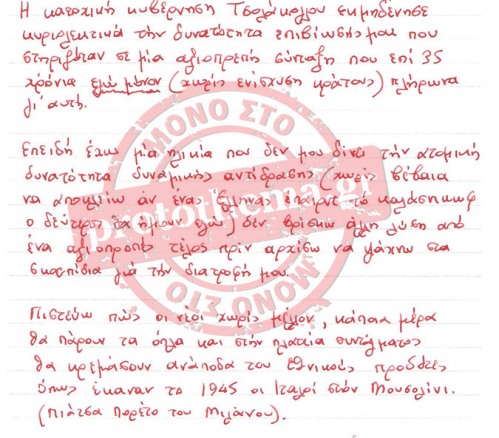 Η κατοχική κυβέρνηση Τσολάκογλου εκμηδένησε
κυριολεκτικά την δυνατότητα επιβίωσής μου που
στηριζόταν σε μία αξιοπρεπή σύνταξη που επί 35
χρόνια εγώ μόνον (χωρίς ενίσχυση κράτους) πλήρωνα
γι' αυτή.
Επειδή έχω μία ηλικία που δεν μου δίνει την ατομική
δυνατότητα δυναμικής αντίδρασης (χωρίς βέβαια
να αποκλείω αν ένας Έλληνας έπαιρνε το καλάσνικωφ
ο δεύτερος θα ήμουν εγώ) δεν βρίσκω άλλη λύση από
ένα αξιοπρεπές τέλος πριν αρχίσω να ψάχνω στα
σκουπίδια για την διατροφή μου.
Πιστεύω πως οι νέοι χωρίς μέλλον, κάποια μέρα
θα πάρουν τα όπλα και στην πλατεία συντάγματος
θα κρεμάσουν ανάποδα τους εθνικούς προδότες
όπως έκαναν το 1945 οι Ιταλοί στον Μουσολίνι.
(Πιάτσα Πορέτο του Μιλάνου).
ΜΟΝΟ ΣΤΟ
protothema.gr
ΜΟΝΟ ΣΤΟ